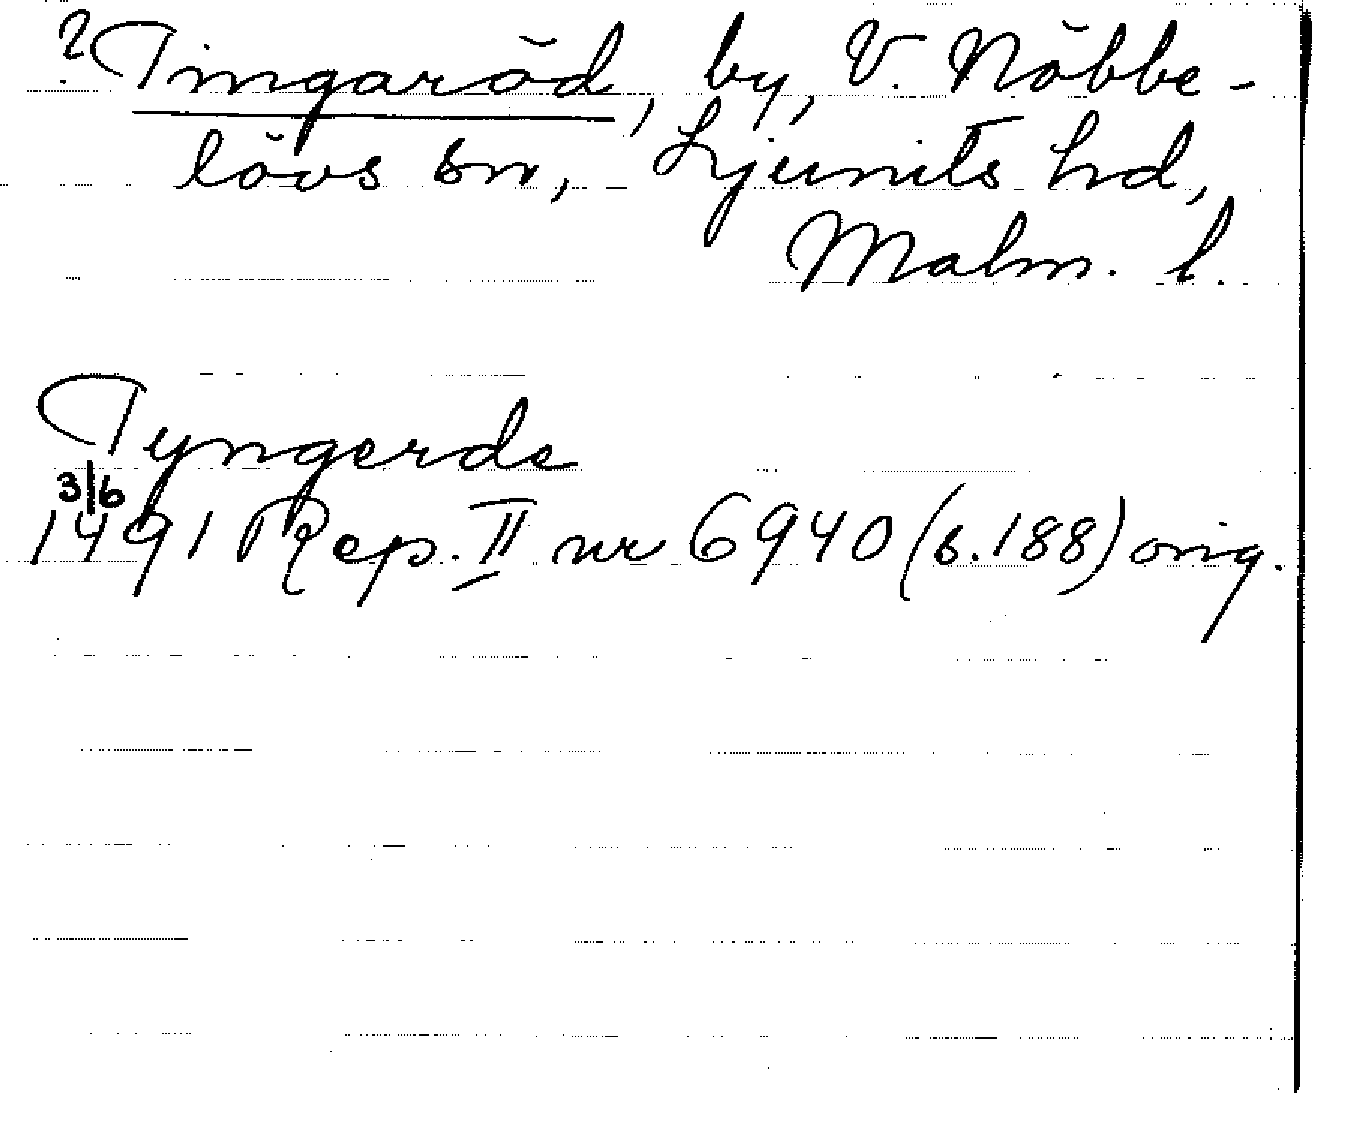 ? Tingaröd, by, V. Nöbbe-
lövs sn, Ljunits hd,
Malm. l.
Tyngerde
3/6
1491 Rep. II nr 6940 (s. 188) orig.